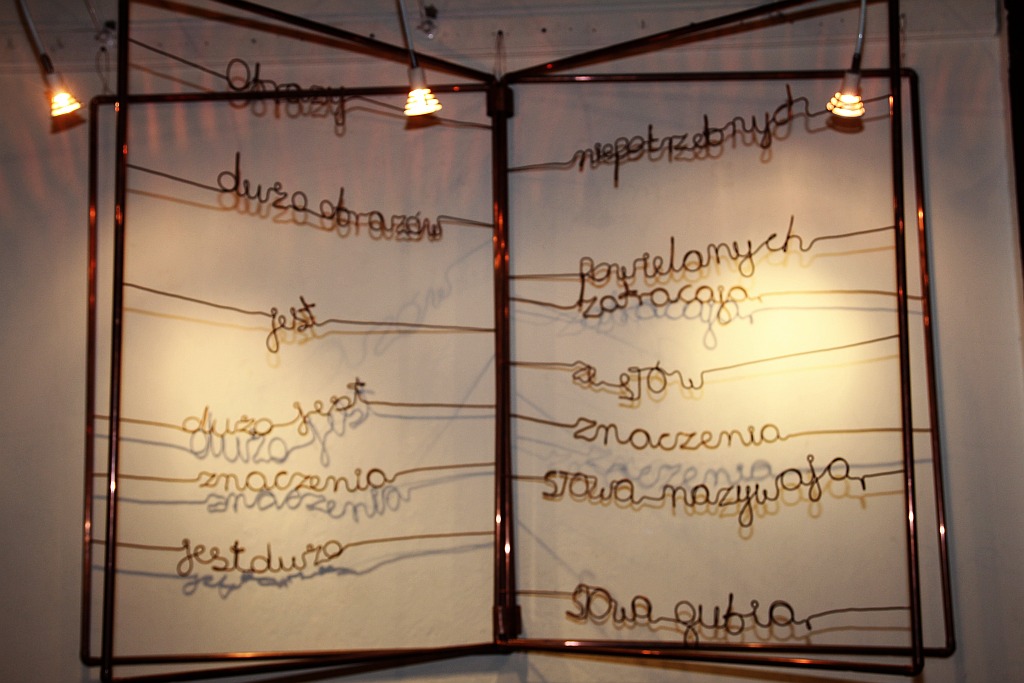 Obrazy
dużo obrazów
jest
dużo jest
znaczenia
jest dużo
niepotrzebnych
powielanych
zatracają
ze słów
znaczenia
słowa nazywają
słowa gubią